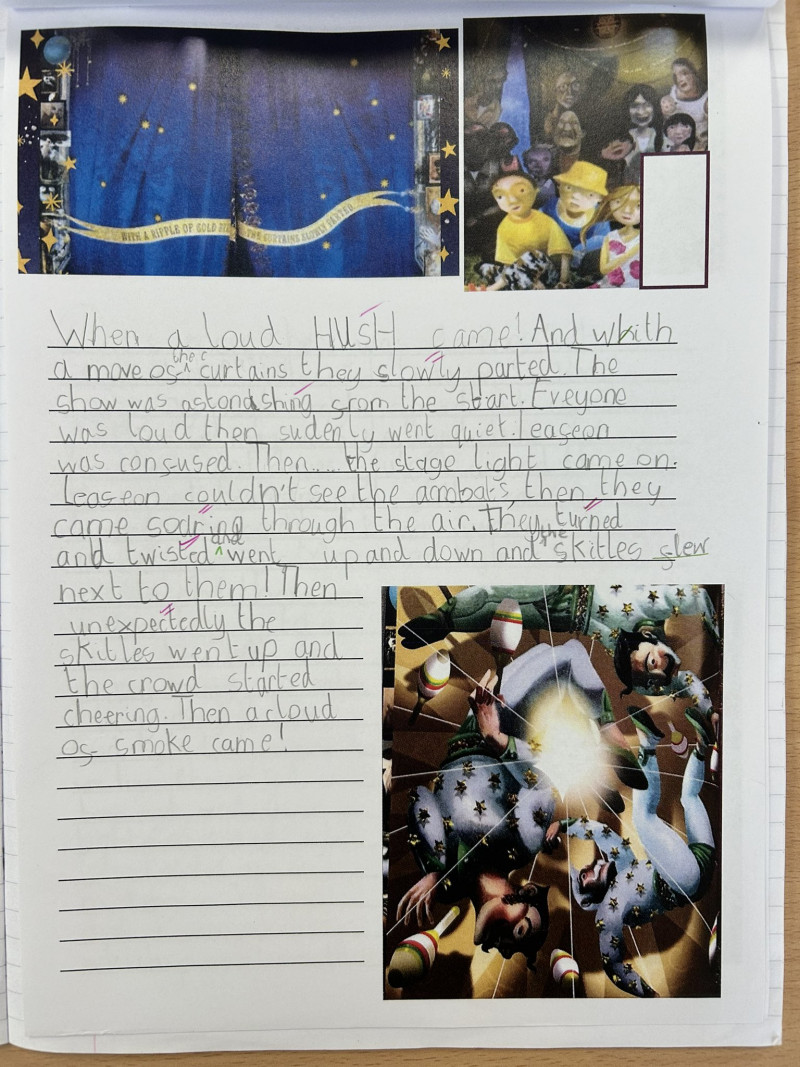 WITH A RIPPLE OF GOLD THE CURTAINS SLOWLY PARTED
When a loud HUSH came! And whith
a move of the curtains they slowly parted. The
show was astondshing from the start. Eveyone
was loud then sudenly went quiet. leaseon
was confused. Then.... the stage light came on.
leaseon couldn't see the then they
came soaring through the air. They turned
and twisted and went up and down and the skitles flew
next to them! Then
unexpectedly the
skitles went up and
the crowd started
cheering. Then a cloud
of smoke came!